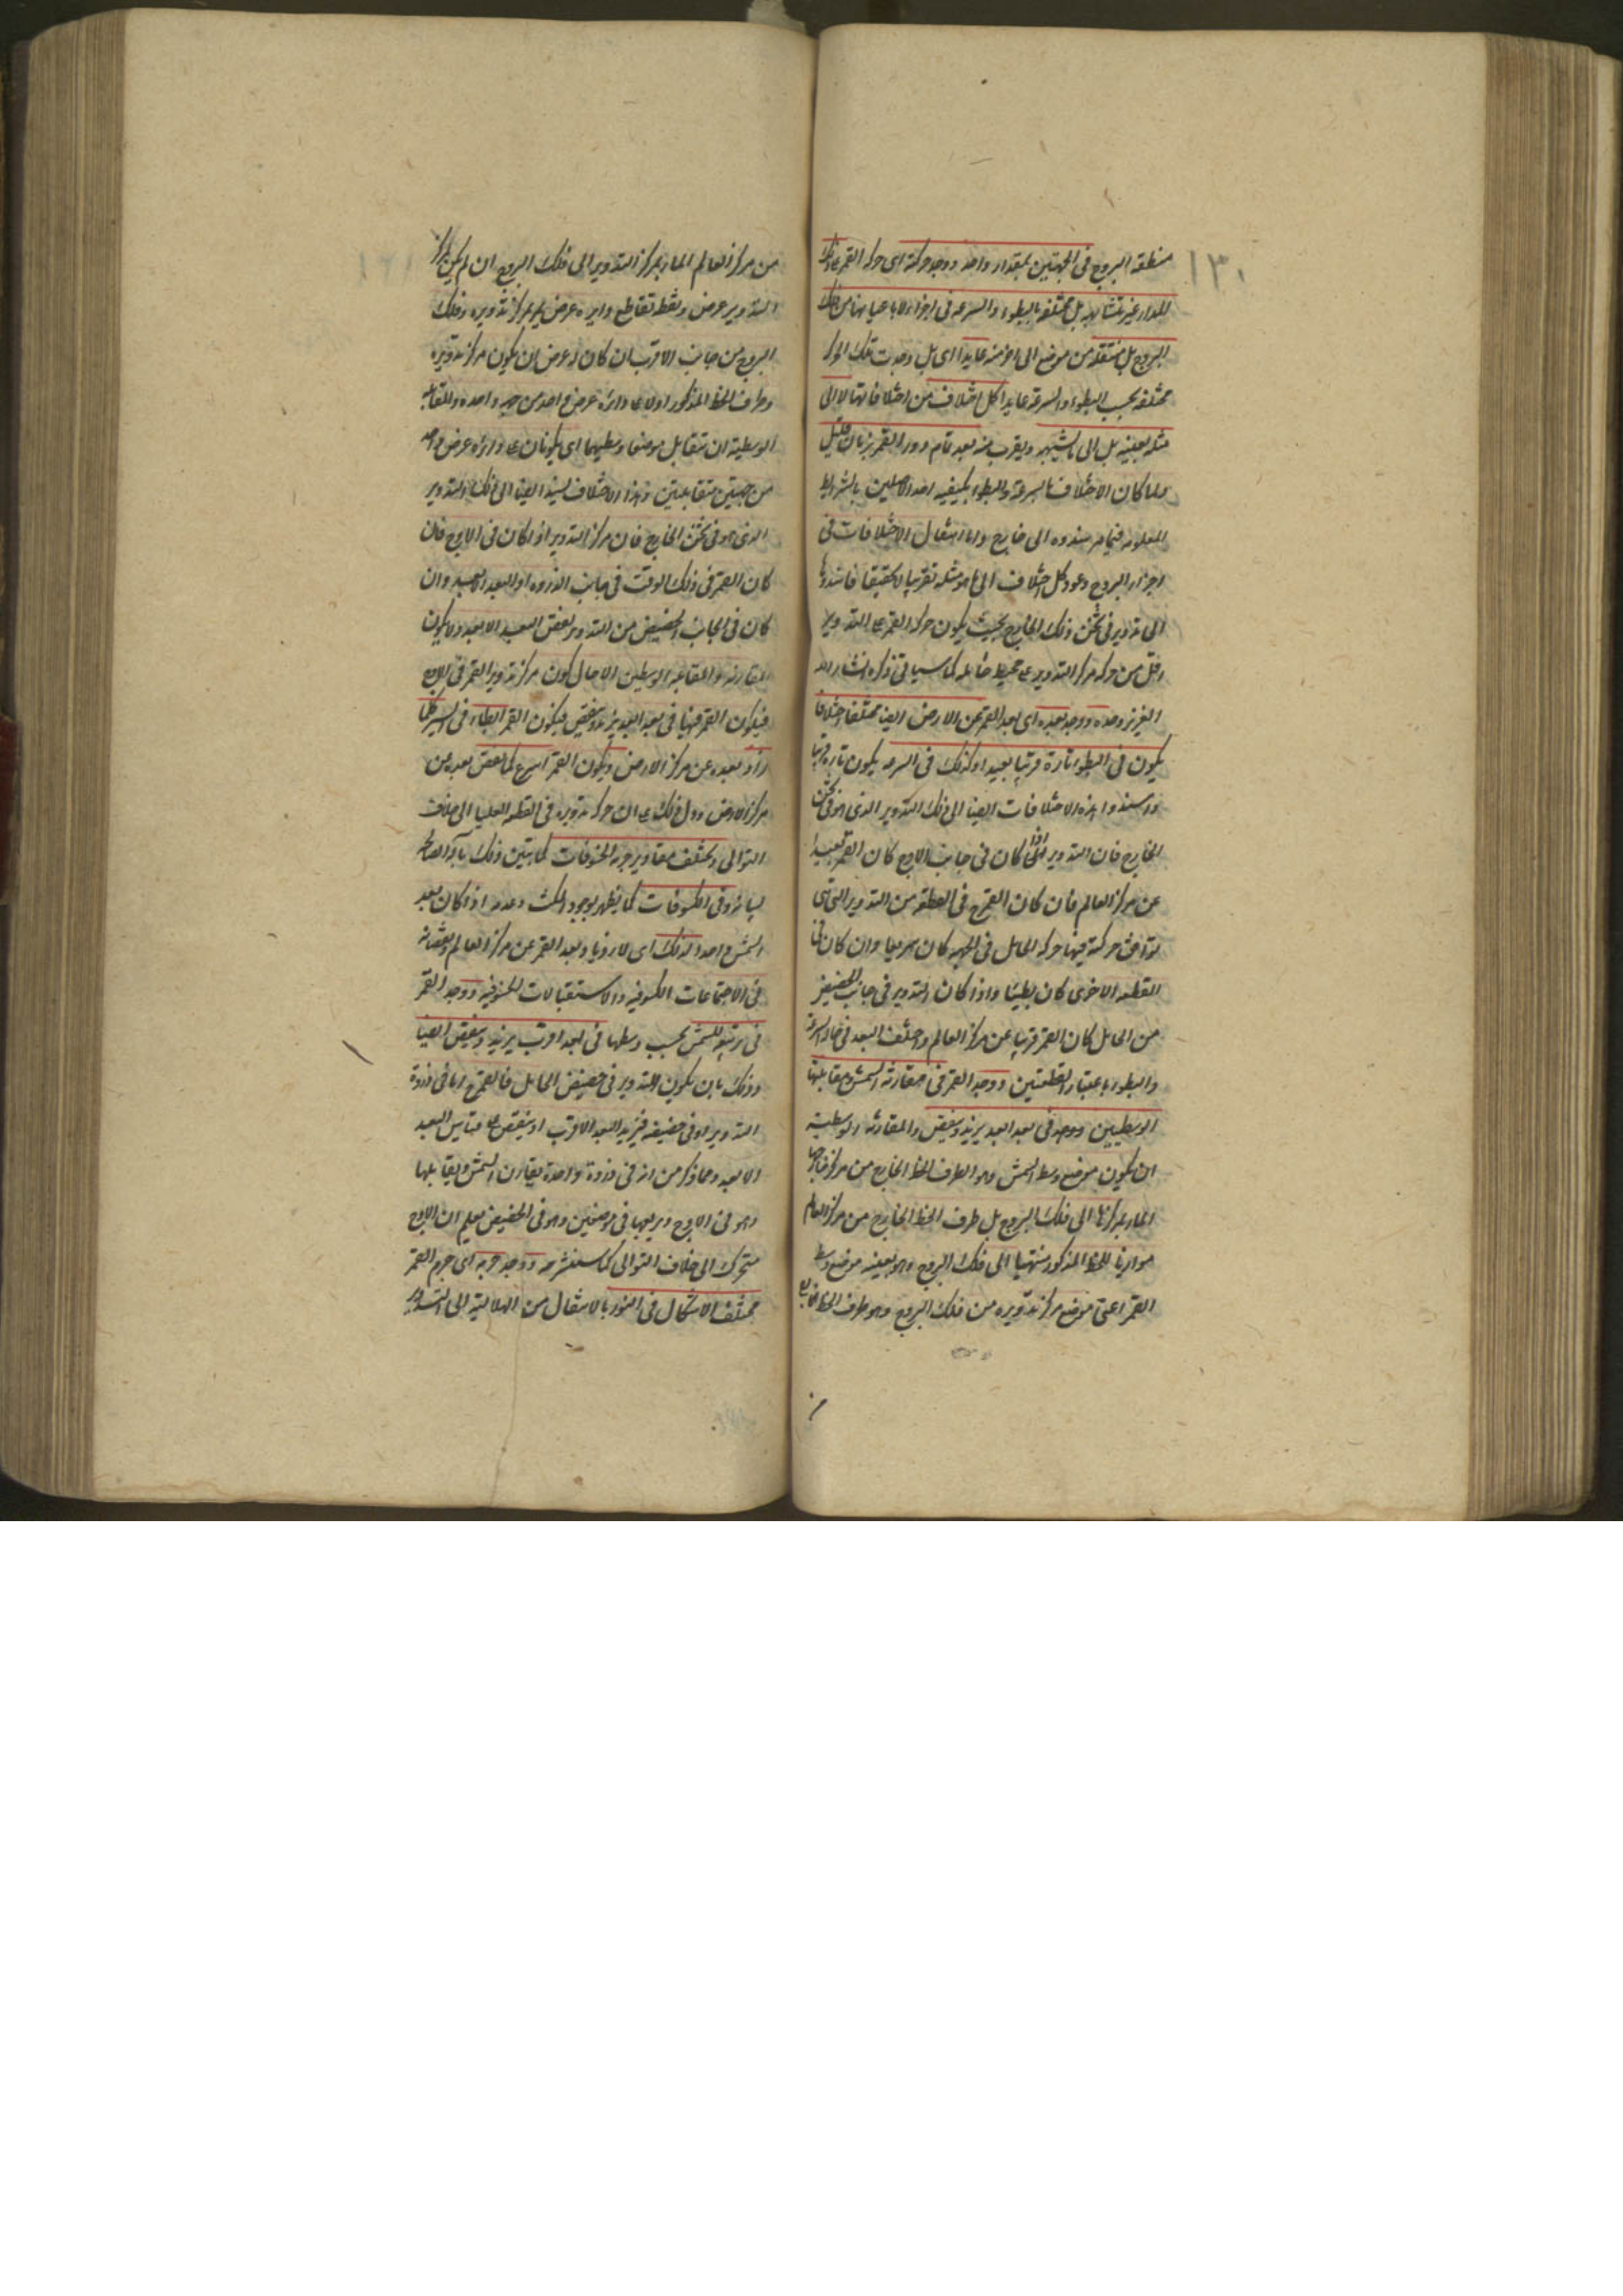 ١٣٠
منطقة البروج في الجهتين بمقدار واحد ووجد حركته اى حركة القمر على ذلك
المدار غير متشابهة بل مختلفة بالبطوء والسرعة في اجزاء لا باعيانها من فلك
البروج بل منتقلة من موضع الى اخر منه عايدا اى بل وجدت تلك الحركة
مختلفة بحسب البطوء والسرعة عايدا كل اختلاف من اختلافاتها لا الى
مثله بعينه بل الى ما يشبهه ويقرب منه بعد تمام دور القمر بزمان قليل
ولما كان الاختلاف بالسرعة والبطوء يكفيه احد الاصلين بالشرايط
المعلومة فيما مر سندوه الى خارج واما انتقال الاختلافات في
اجزاء البروج وعود كل اختلاف الى ما هو مثله تقريبا لا تحقيقا فاسندوها
الى تدوير في ثخن ذلك الخارج بحيث يكون حركة القمر على التدوير
اقل من حركة مركز التدوير على محيط حامله كما سياتي ذكره انشاء الله
العزيز وحده ووجد بعده اى بعد القمر عن الارض ايضا مختلفا اختلافا
يكون في البطوء تارة قريبا بعيدا وكذلك في السرعة يكون تارة قريبا
واسندوا هذه الاختلافات ايضا الى فلك التدوير الذى هو في ثخن
الخارج فان التدوير اذا كان في جانب الاوج كان القمر بعيدا
عن مركز العالم فان كان القمر ح في القطعة من التدوير التي
توافق حركته فيها حركة الحامل في الجهة كان سريعا وان كان في
القطعة الاخرى كان بطيئا واذا كان التدوير في جانب الحضيض
من الحامل كان القمر قريبا عن مركز العالم واختلف البعد في حال السرعة
والبطوء باعتبار القطعتين ووجد القمر في مقارنة الشمس ومقابلتها
الوسطيين ووجد في بعد ابعد يزيد وينقص والمقارنة الوسطية
ان يكون موضع وسط الشمس وهو الطرف الخط الخارج من مركز خارجها
المار بمركزها الى فلك البروج بل طرف الخط الخارج من مركز العالم
موازيا للخط المذكور منتهيا الى فلك البروج وهو بعينه موضع وسط
القمر اعنى موضع مركز تدويره من فلك البروج وهو طرف الخط الخارج
من مركز العالم المار بمركز التدوير الى فلك البروج ان لم يكن لمركز
التدوير عرض ونقطة تقاطع دايرة عرض يمر بمركز تدويره وفلك
البروج من جانب الاقرب ان كان له عرض ان يكون مركز تدويره
وطرف الخط المذكور اولا على دائرة عرض واحد من جهة واحدة والمقابلة
الوسطية ان تتقابل موضعا وسطيهما اى يكونان على دائرة عرض واحد
من جهتين متقابلتين وهذا الاختلاف يسند ايضا الى فلك التدوير
الذى هو في ثخن الخارج فان مركز التدوير اذا كان في الاوج فان
كان القمر في ذلك الوقت في جانب الذروة او البعد الابعد وان
كان في الجانب الحضيض من التدوير نقص البعد الابعد ولا يكون
المقارنة والمقابلة الوسطين الا حال كون مركز تدوير القمر في الاوج
فيكون القمر فيها في بعد ابعد يزيد وينقص فيكون القمر ابطاء في السير كلما
زاد بعده عن مركز الارض ويكون القمر اسرع كلما نقص بعده من
مركز الارض ودل ذلك على ان حركة تدويره في القطعة العليا الى خلاف
التوالى ويختلف مقادير جرم الخسوفات كما يتبين ذلك بآلة صالحة
لبيانه وفي الكسوفات كما يظهر بوجود المكث وعدمه اذا كان بعد
الشمس واحدا لذلك اى لازدياد بعد القمر عن مركز العالم ونقصانه
في الاجتماعات الكسوفية والاستقبالات الخسوفية ووجد القمر
في تربيع الشمس بحسب وسطها في بعد اقرب يزيد وينقص ايضا
وذلك بان يكون التدوير في حضيض الحامل فالقمر ح اما في ذروة
التدوير او في حضيضه فيزيد البعد الاقرب او ينقص على قياس البعد
الابعد ومما ذكر من انه في دورة واحدة يقارن الشمس ويقابلها
وهو في الاوج ويربعها في موضعين وهو في الحضيض يعلم ان الاوج
متحرك الى خلاف التوالى كما سنشرحه ووجد جرمه اى جرم القمر
مختلف الاشكال في النور بالانتقال من الهلالية الى التدوير